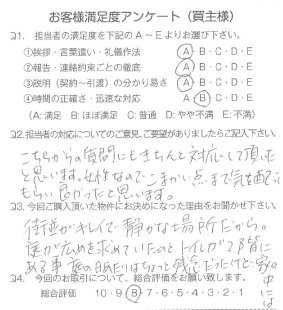 お客様満足度アンケート（買主様）
Q1. 担当者の満足度を下記のA～Eよりお選び下さい。
①挨拶・言葉遣い・礼儀作法 A・B・C・D・E
②報告・連絡約束ごとの徹底 A・B・C・D・E
③説明（契約～引渡）の分かり易さ A・B・C・D・E
④時間の正確さ・迅速な対応 A・B・C・D・E
(A:満足 B:ほぼ満足 C:普通 D:やや不満 E:不満)
Q2.担当者の対応についてのご意見、ご要望がありましたらご記入下さい。
こちらからの質問にもきちんと対応して頂いた
と思います。女性なのでこまかい点まで気を配って
もらい良かったと思います。
Q3.今回ご購入頂いた物件にお決めになった理由をお聞かせ下さい。
街並がキレイで静かな場所だから。
庭が広めを求めていたのとトイレが2階に
ある事 庭の日あたりはちょっと残念だったけど、家の中には
Q4. 今回のお取引について、総合評価をお願い致します。
総合評価 10・9・8・7・6・5・4・3・2・1